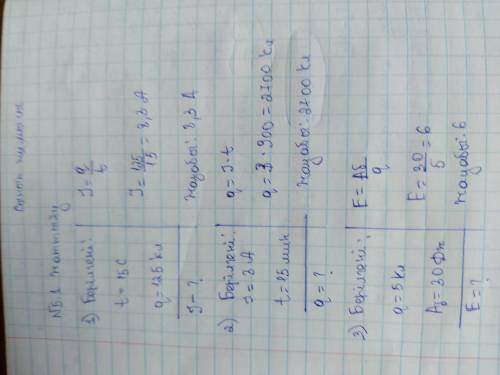 Сынып жұмысы
№5.1 жаттығу
1) Берілгені:
t = 15 с
q = 125 кл
I - ?
I = q/t
I = 125/15 = 8,3 А
жауабы: 8,3 А
2) Берілгені:
I = 3 А
t = 15 мин
q = ?
q = I · t
q = 3 · 900 = 2700 кл
жауабы: 2700 кл
3) Берілгені:
q = 5 кл
Aб = 30 Дж
E = ?
E = Aб/q
E = 30/5 = 6
жауабы: 6